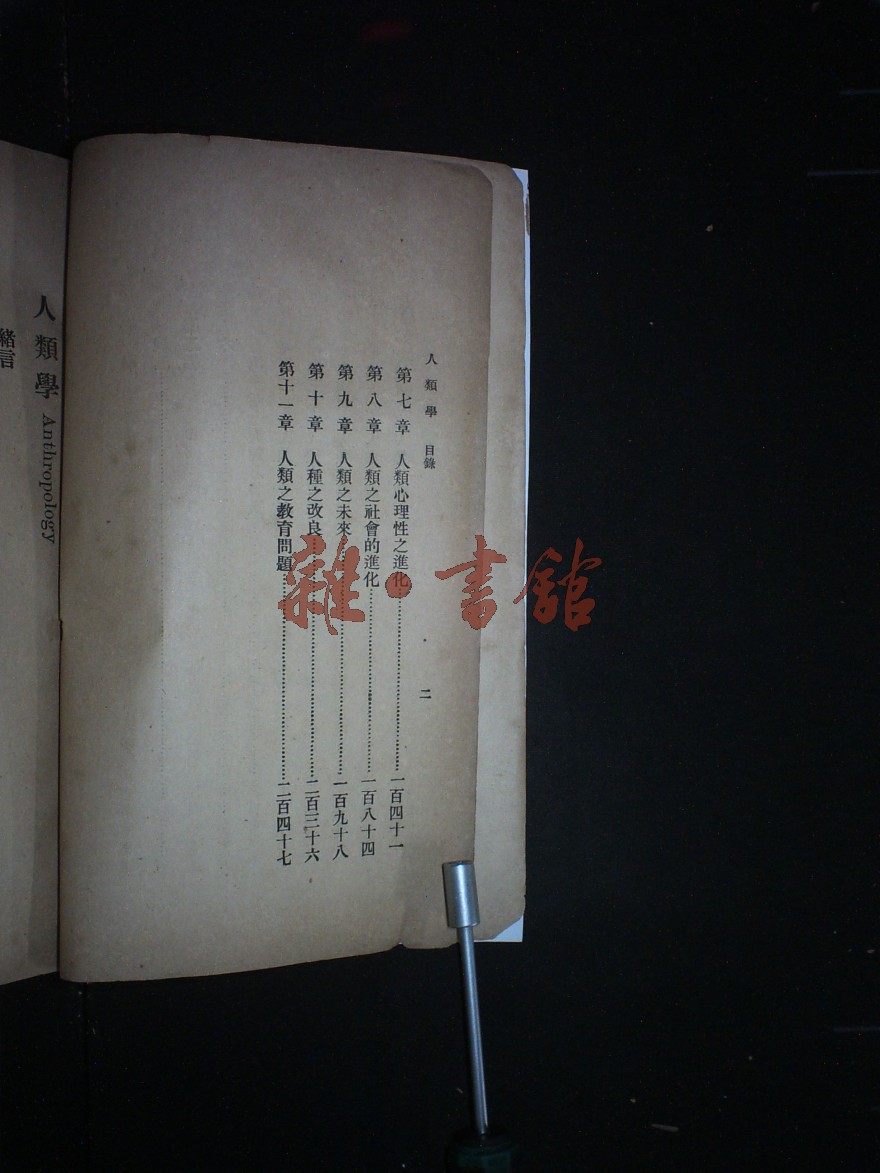 人類學 目錄 二
第七章 人類心理性之進化 一百四十一
第八章 人類之社會的進化 一百八十四
第九章 人類之未來 一百九十八
第十章 人種之改良 二百三十六
第十一章 人類之教育問題 二百四十七
人類學 Anthropology
緒言
雜·書館